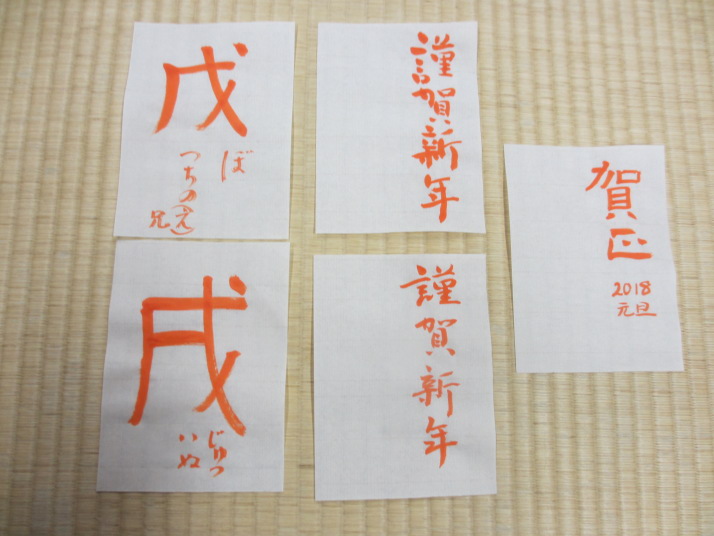 戊
ぼ
つちの(え)
兄
戌
じゅつ
いぬ
謹賀新年
謹賀新年
賀正
2018
元旦